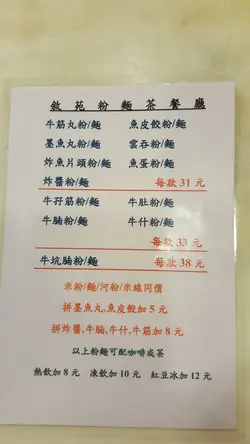 敘苑粉麵茶餐廳
牛筋丸粉/麵 魚皮餃粉/麵
墨魚丸粉/麵 雲吞粉/麵
炸魚片頭粉/麵 魚蛋粉/麵
炸醬粉/麵 每款 31 元
牛孖筋粉/麵 牛肚粉/麵
牛腩粉/麵 牛什粉/麵
每款 33 元
牛坑腩粉/麵 每款 38 元
米粉/麵/河粉/米線同價
拼墨魚丸,魚皮餃加 5 元
拼炸醬,牛腩,牛什,牛筋加 8 元
以上粉麵可配咖啡或茶
熱飲加 8 元 凍飲加 10 元 紅豆冰加 12 元